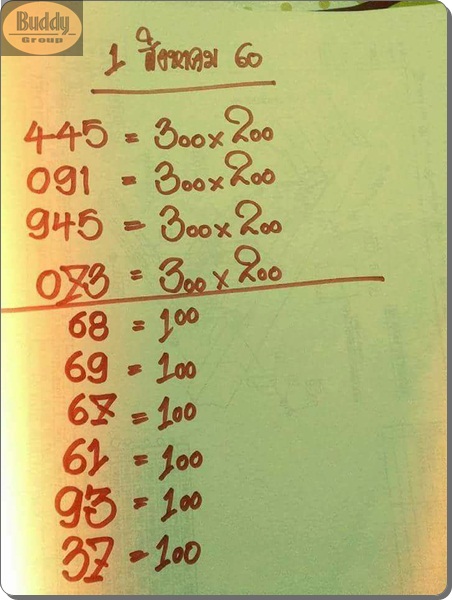 Buddy
Group
1 สิงหาคม 60
445 = 300x200
091 = 300x200
945 = 300x200
073 = 300x200
68 = 100
69 = 100
67 = 100
61 = 100
93 = 100
37 - 100